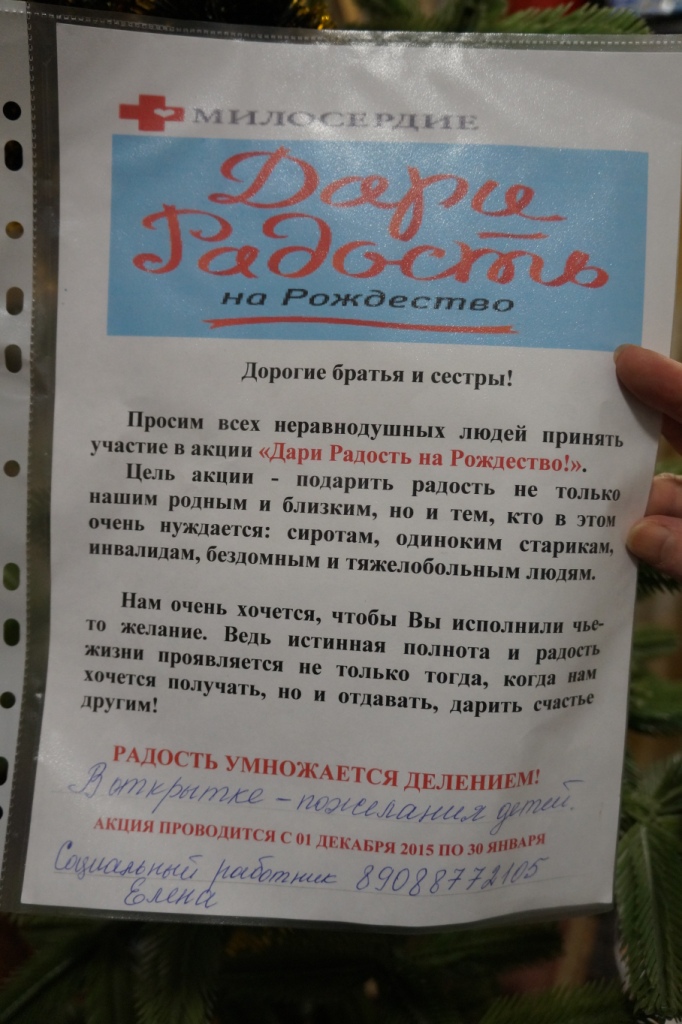 МИЛОСЕРДИЕ
Дари
Радость
на Рождество
Дорогие братья и сестры!
Просим всех неравнодушных людей принять
участие в акции «Дари Радость на Рождество!».
Цель акции - подарить радость не только
нашим родным и близким, но и тем, кто в этом
очень нуждается: сиротам, одиноким старикам,
инвалидам, бездомным и тяжелобольным людям.
Нам очень хочется, чтобы Вы исполнили чье-
то желание. Ведь истинная полнота и радость
жизни проявляется не только тогда, когда нам
хочется получать, но и отдавать, дарить счастье
другим!
РАДОСТЬ УМНОЖАЕТСЯ ДЕЛЕНИЕМ!
В открытке - пожелания детей.
АКЦИЯ ПРОВОДИТСЯ С 01 ДЕКАБРЯ 2015 ПО 30 ЯНВАРЯ
Социальный работник 89088772105
Елена